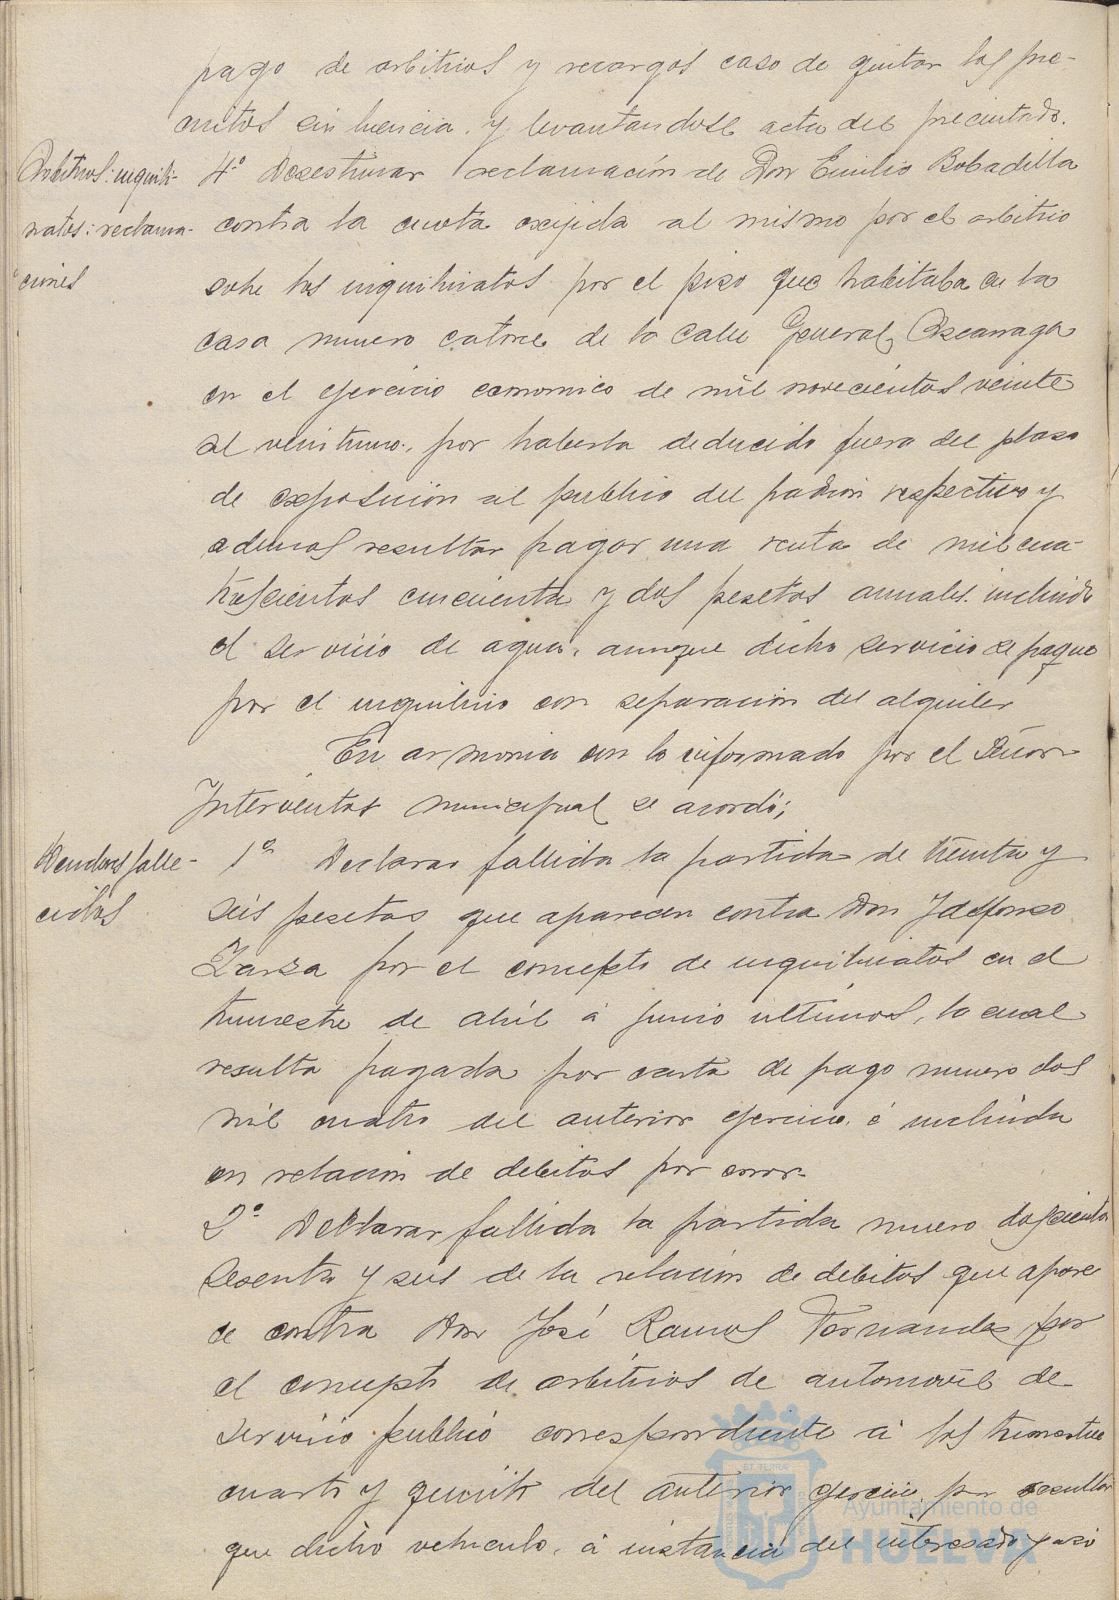 pago de arbitrios y recargos caso de quitar los pre-
cintos sin licencia y levantandose acta del precintado.
Arbitrios: inquili-
natos: reclama-
ciones
4º Desestimar reclamación de Don Emilio Bobadilla
contra la cuota exijida al mismo por el arbitrio
sobre los inquilinatos por el piso que habitaba en la
casa numero catorce de la calle General Azcarraga
en el ejercicio economico de mil novecientos veinte
al veintiuno, por haberla deducido fuera del plazo
de exposición al publico del padrón respectivo y
ademas resultar pagar una renta de mil cua-
trescientos cincuenta y dos pesetas anuales incluido
el servicio de agua, aunque dicho servicio se pague
por el inquilino con separacion del alquiler
En armonia con lo informado por el Señor
Interventor municipal se acordó;
Deudores falle-
cidos
1º Declarar fallida la partida de treinta y
seis pesetas que aparecen contra Don Ildefonso
Zarza por el concepto de inquilinatos en el
trimestre de abril á junio ultimos, la cual
resulta pagada por carta de pago numero dos
mil cuatro del anterior ejercicio é incluida
en relacion de debitos por error.
2º Declarar fallida la partida numero doscientos
sesenta y seis de la relación de debitos que apare
ce contra Don José Ramos Fernandez por
el concepto de arbitrios de automovil de
servicio publico correspondiente á los trimestres
cuarto y quinto del anterior ejercicio, por resultar
que dicho vehiculo, á instancia del interesado y así
Ayuntamiento de
HUELVA